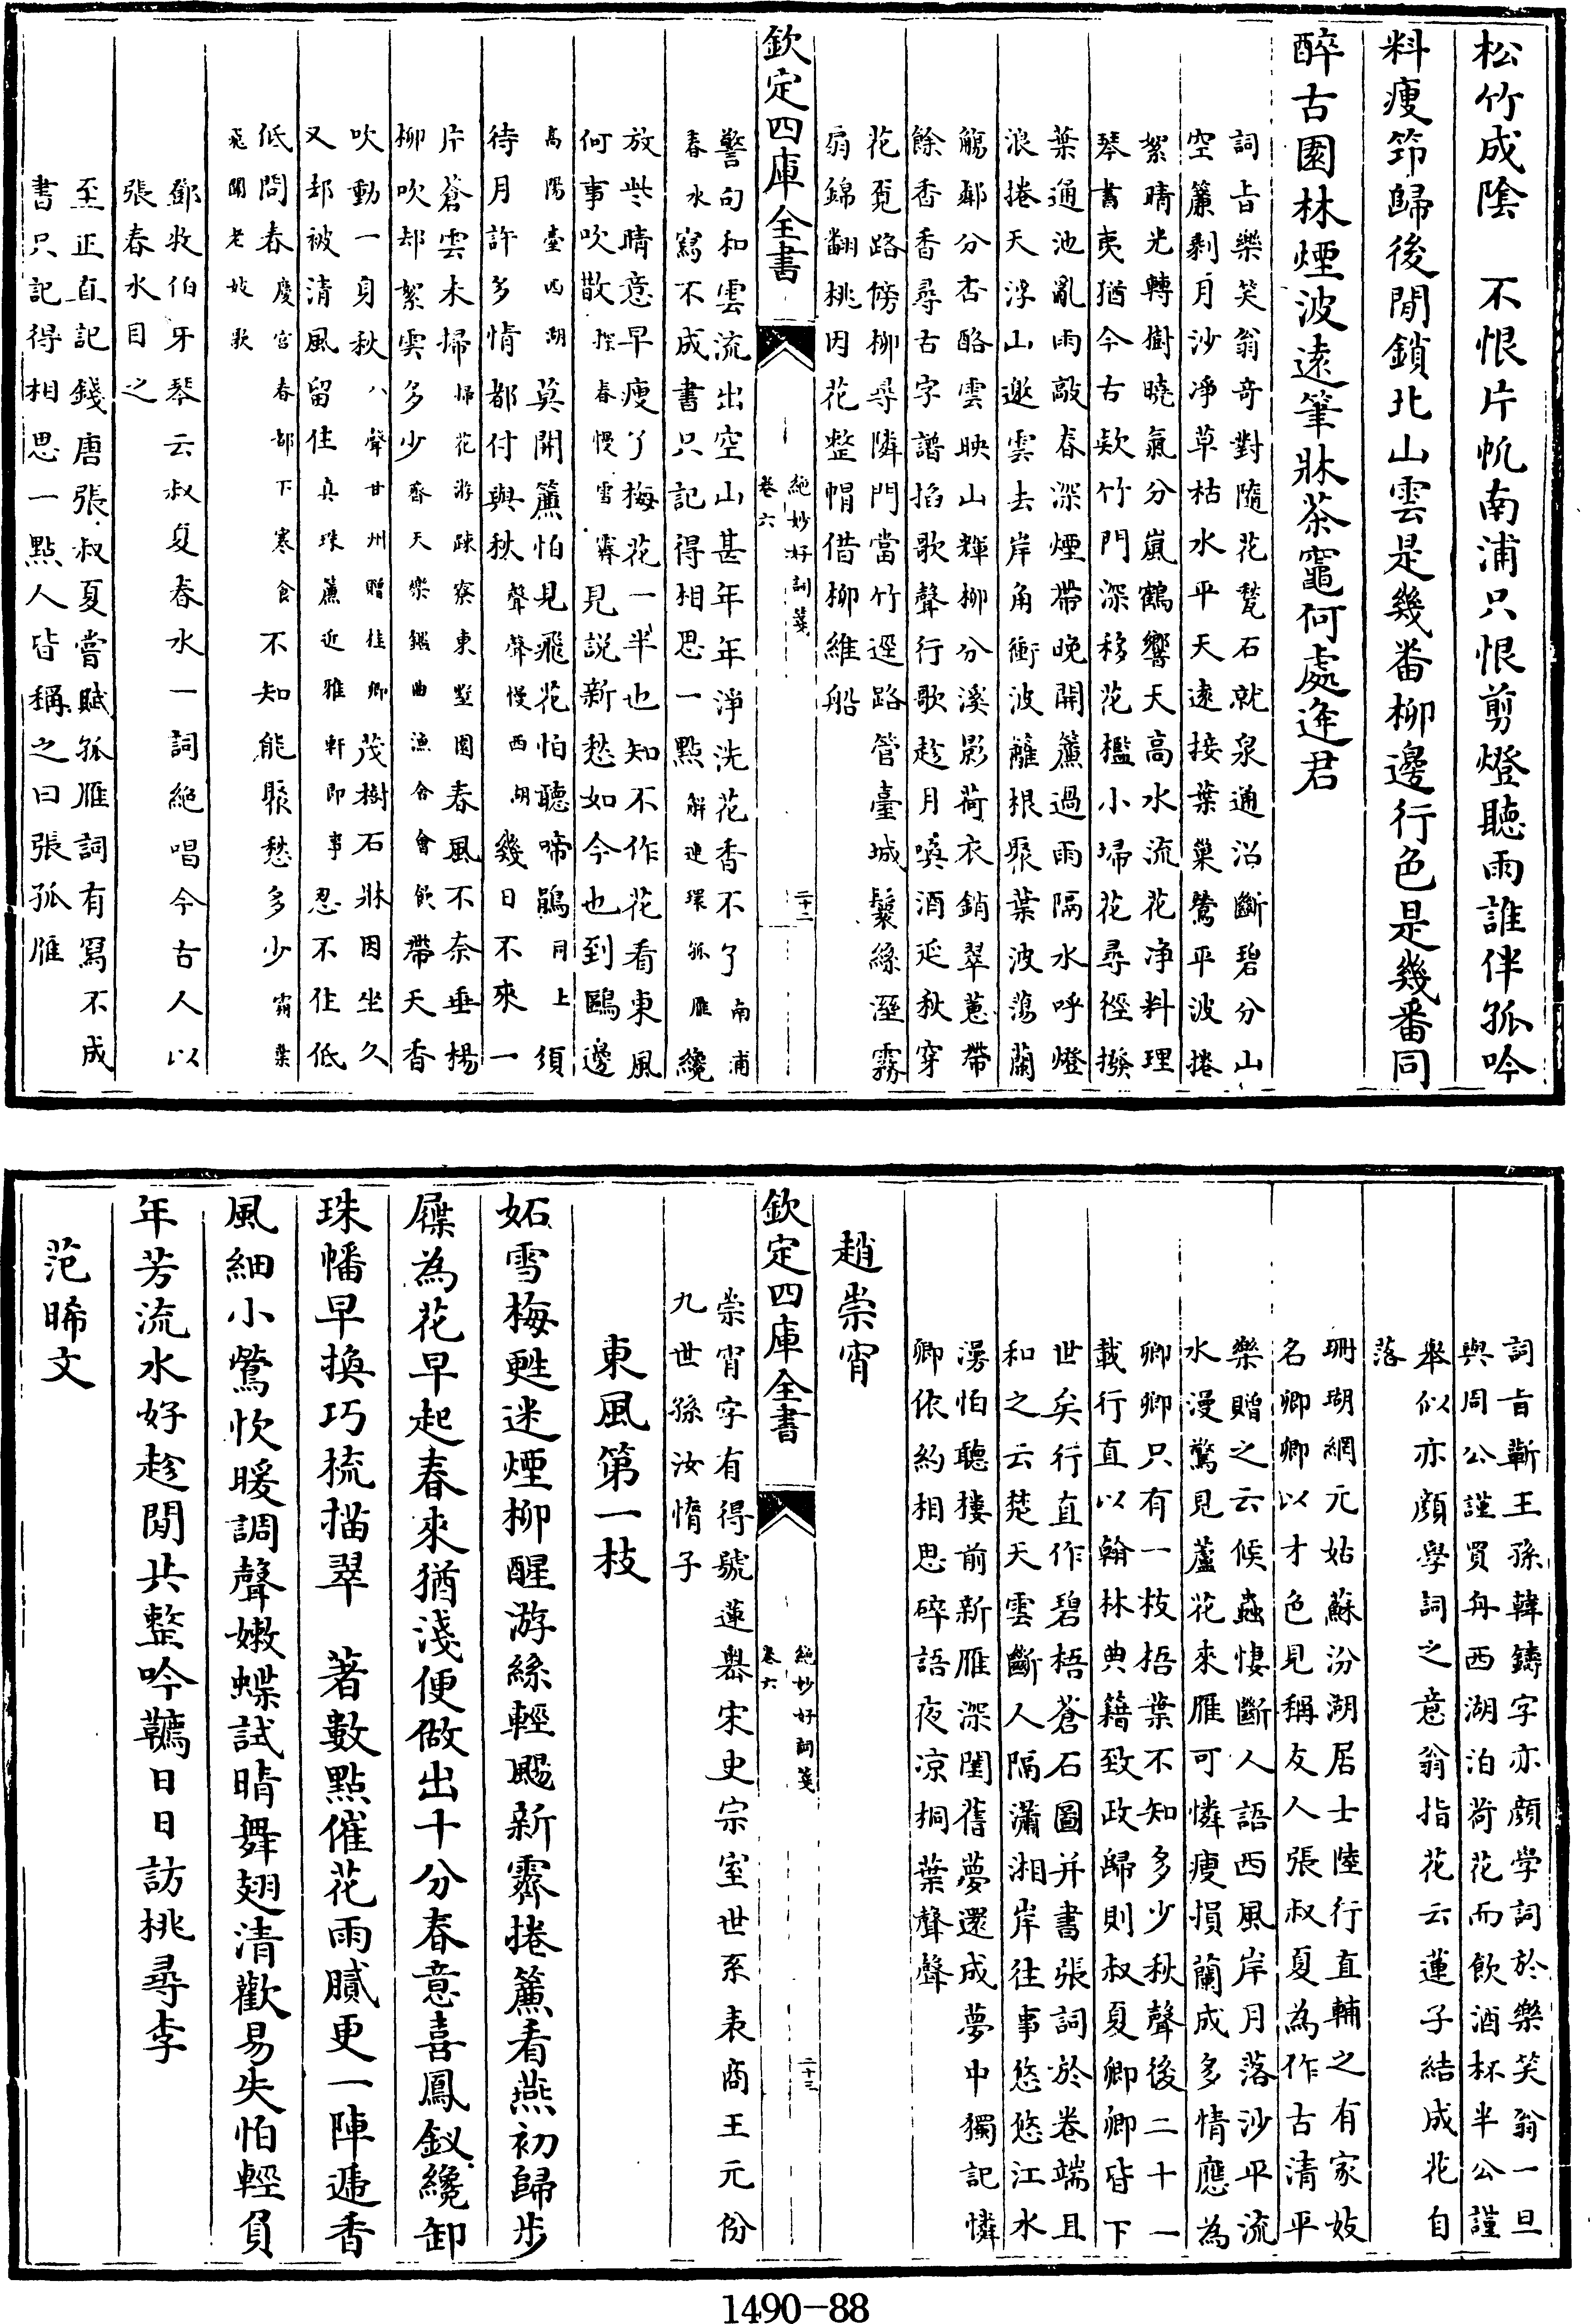 松竹成陰　不恨片帆南浦只恨剪燈聽雨誰伴孤吟
料瘦筇歸後閒鎖北山雲是幾畨柳邊行色是幾番同
醉古園林煙波逺筆牀茶竈何處逢君
詞㫖樂笑翁竒對隨花甃石就泉通沼斷碧分山
空簾剩月沙凈草枯水平天逺接葉巢鶯平波捲
絮晴光轉樹曉氣分嵐鶴響天高水流花净料理
琴書夷猶今古欵竹門深移花檻小埽花尋徑撥
葉通池亂雨敲春深煙帶晚開簾過雨隔水呼燈
浪捲天浮山邀雲去岸角衝波籬根聚葉波蕩蘭
觴鄰分杏酪雲映山輝柳分溪影荷衣銷翠蕙帶
餘香香尋古字譜掐歌聲行歌趁月喚酒延秋穿
花覓路傍柳尋隣門當竹逕路管臺城鬢絲溼霧
扇錦翻桃因花整帽借柳維船
欽定四庫全書
絶妙好詞箋
卷六
二十二
警句和雲流出空山甚年年淨洗花香不了南浦
春水寫不成書只記得相思一點解連環孤雁纔
放些晴意早瘦了梅花一半也知不作花看東風
何事吹散探春慢雪霽見説新愁如今也到鷗邊
髙陽臺西湖莫開簾怕見飛花怕聽啼鵑同上須
待月許多情都付與秋聲聲慢西湖幾日不來一
片蒼雲未掃掃花游疎寮東墅園春風不奈垂楊
柳吹却絮雲多少齊天樂鑑曲漁舍會飲帶天香
吹動一身秋八聲甘州贈桂卿茂樹石牀因坐久
又却被清風留住真珠簾近雅軒即事忍不住低
低問春慶宮春都下寒食不知能聚愁多少霜葉
飛聞老妓歌
鄧牧伯牙琴云叔夏春水一詞絶唱今古人以
張春水目之
至正直記錢唐張叔夏嘗賦孤雁詞有寫不成
書只記得相思一點人皆稱之曰張孤雁
詞㫖蘄王孫韓鑄字亦顔學詞於樂笑翁一旦
與周公謹買舟西湖泊荷花而飲酒杯半公謹
舉似亦顔學詞之意翁指花云蓮子結成花自
落
珊瑚網元姑蘇汾湖居士陸行直輔之有家妓
名卿卿以才色見稱友人張叔夏為作古清平
樂贈之云候蟲悽斷人語西風岸月落沙平流
水漫驚見蘆花來雁可憐瘦損蘭成多情應為
卿卿只有一枝梧葉不知多少秋聲後二十一
載行直以翰林典籍致政歸則叔夏卿卿皆下
世矣行直作碧梧蒼石圖并書張詞於卷端且
和之云楚天雲斷人隔瀟湘岸往事悠悠江水
漫怕聽樓前新雁深閨舊夢還成夢中獨記憐
卿依約相思碎語夜凉桐葉聲聲
趙崇霄
欽定四庫全書
絶妙好詞箋
卷六
二十三
崇霄字有得號蓮嶴宋史宗室世系表商王元份
九世孫汝惰子
東風第一枝
妬雪梅甦迷煙柳醒游絲輕颺新霽捲簾看燕初歸步
屧為花早起春來猶淺便做出十分春意喜鳳釵纔卸
珠幡早換巧梳描翠　著數點催花雨膩更一陣遞香
風細小鶯忺暖調聲嫰蝶試晴舞翅清歡易失怕輕負
年芳流水好趁閒共整吟韉日日訪桃尋李
范晞文
1490-88